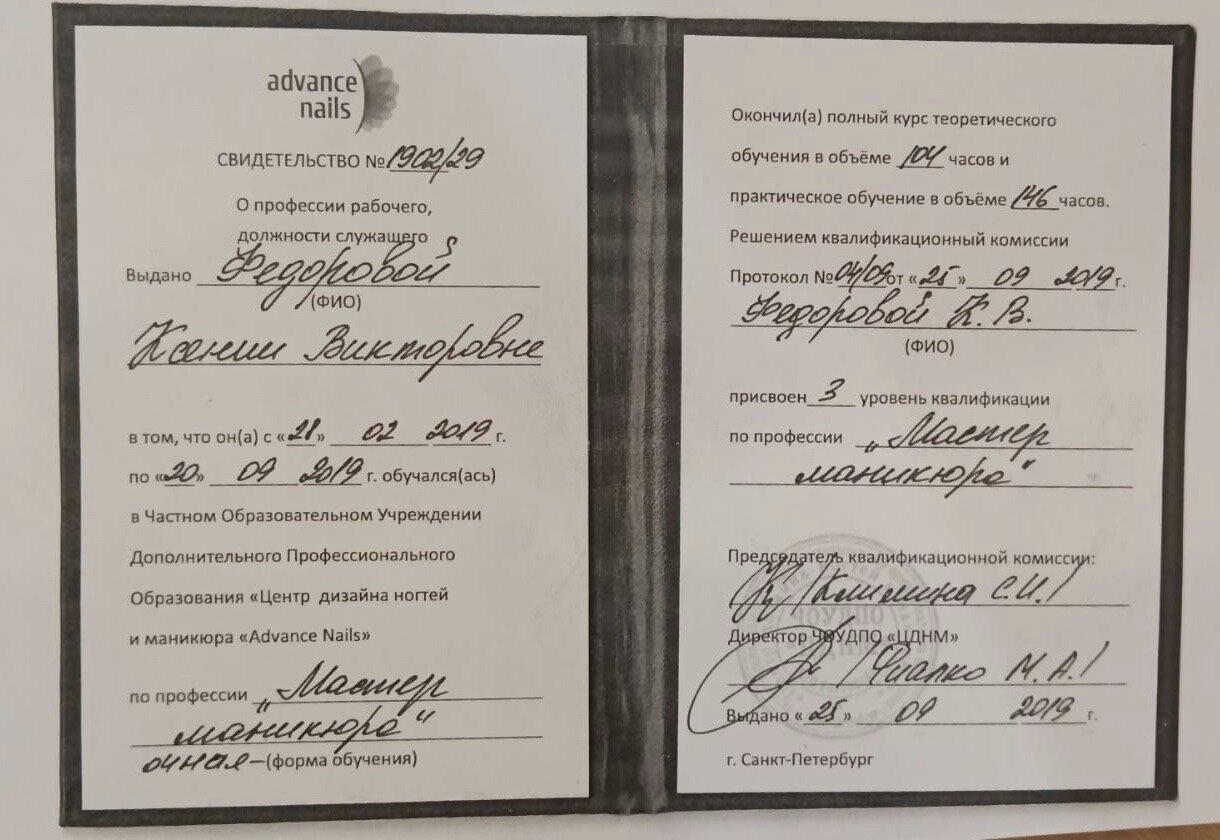 advance
nails
СВИДЕТЕЛЬСТВО № 1902/29
О профессии рабочего,
должности служащего
Выдано Федоровой
(ФИО)
Ксении Викторовне
в том, что он(а) с «28» 02 2019 г.
по «20» 09 2019 г. обучался(ась)
в Частном Образовательном Учреждении
Дополнительного Профессионального
Образования «Центр дизайна ногтей
и маникюра «Advance Nails»
по профессии „Мастер
маникюра"
очная – (форма обучения)
Окончил(а) полный курс теоретического
обучения в объёме 104 часов и
практическое обучение в объёме 146 часов.
Решением квалификационный комиссии
Протокол № 04/09 от «25» 09 2019 г.
Федоровой К. В.
(ФИО)
присвоен 3 уровень квалификации
по профессии „Мастер
маникюра"
Председатель квалификационной комиссии:
/Климина С.И./
Директор ЧОУДПО «ЦДНМ»
/Фиалко М.А./
Выдано «25» 09 2019 г.
г. Санкт-Петербург
ЧОУДПО